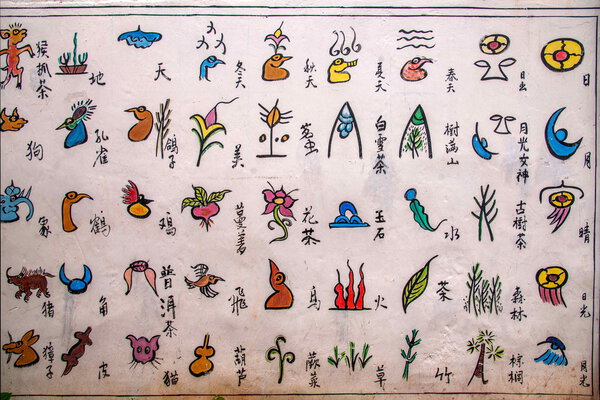 日
日出
春天
夏天
秋天
冬天
天
地
猴抓茶
月
月光女神
樹满山
白雪茶
美
鸽子
孔雀
狗
晴
古樹茶
水
玉石
花茶
蔓菁
鸡
鹤
象
日光
森林
茶
火
鸟
飛
普洱茶
角
猪
月光
棕榈
竹
草
蕨菜
葫芦
猫
皮
獐子